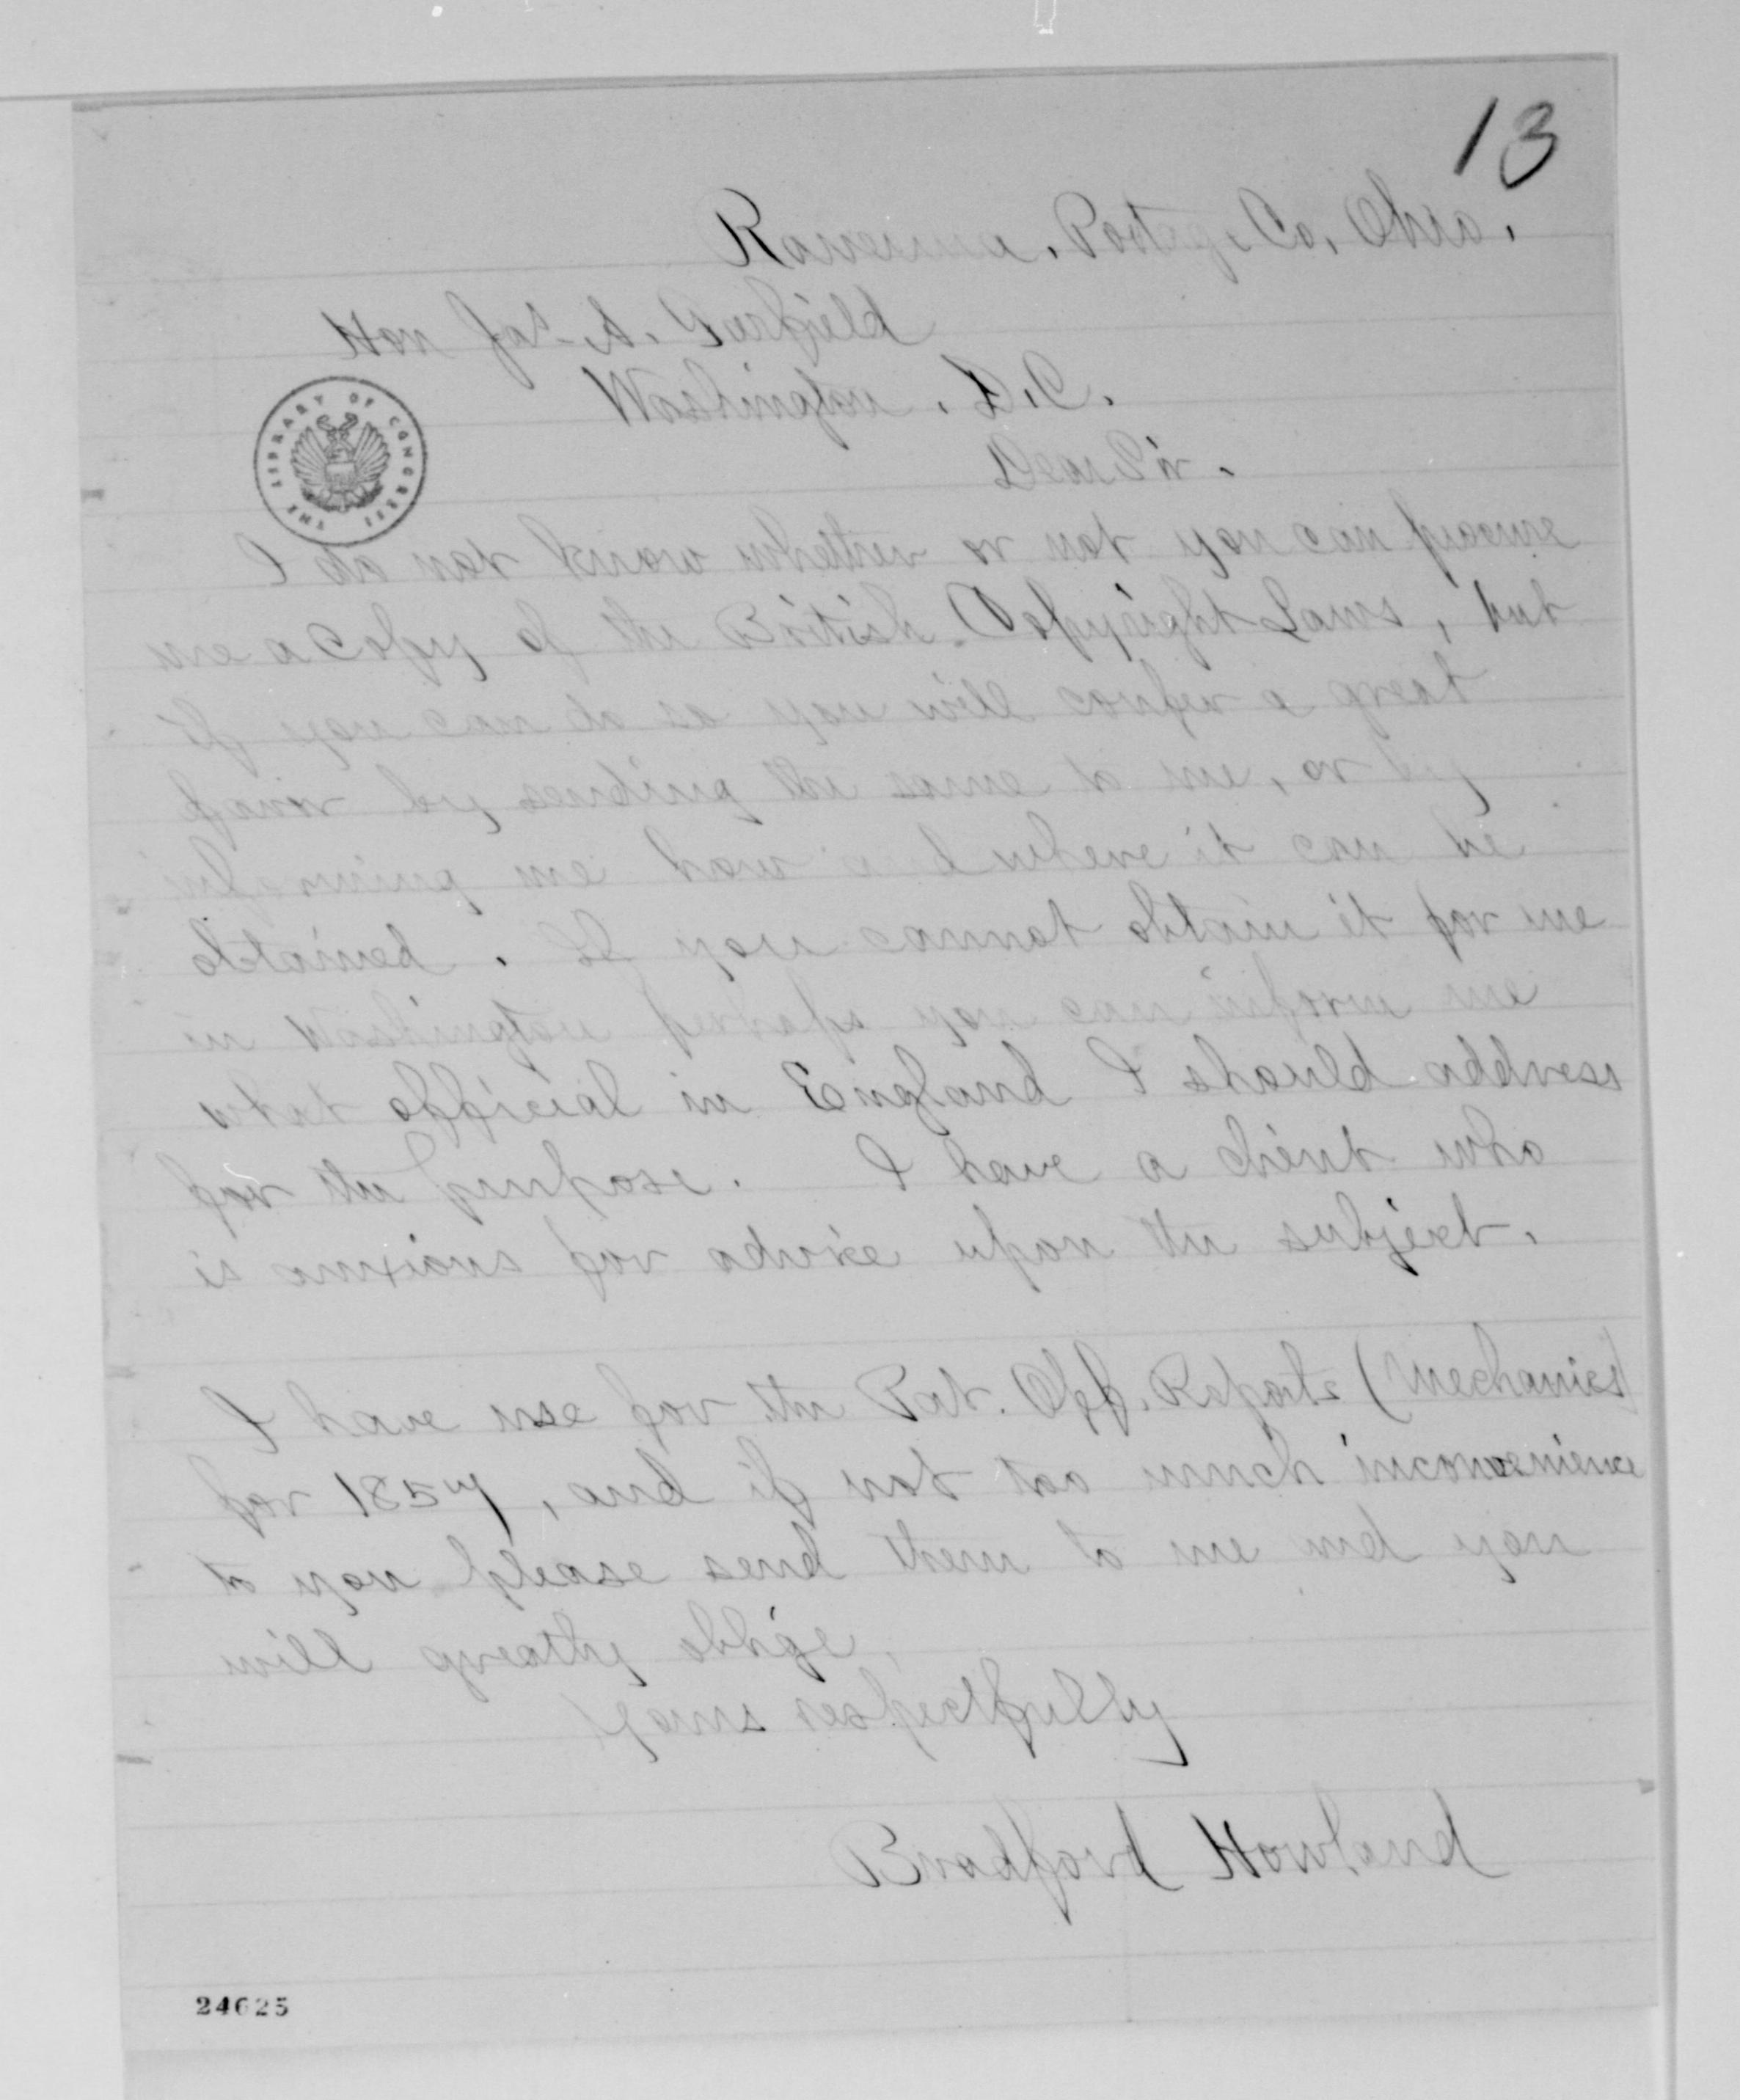 13
Ravenna. Portage. Co, Ohio.
Hon Jas. A. Garfield
Washington. D.C.
Dear Sir.
THE LIBRARY OF CONGRESS
I do not know whether or not you can procure
me a copy of the British Copyright Laws, but
if you can do so you will confer a great
favor by sending the same to me, or by
informing me how and where it can be
obtained. If you cannot obtain it for me
in Washington perhaps you can inform me
what official in England I should address
for the purpose. I have a client who
is anxious for advice upon the subject.
I have use for the Pat. Off. Reports (Mechanics)
for 1857, and if not too much inconvenience
to you please send them to me and you
will greatly oblige,
Yours respectfully
Bradford Howland
24625